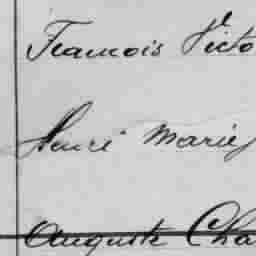 Francois Victo
Henri Marie
Auguste Cha